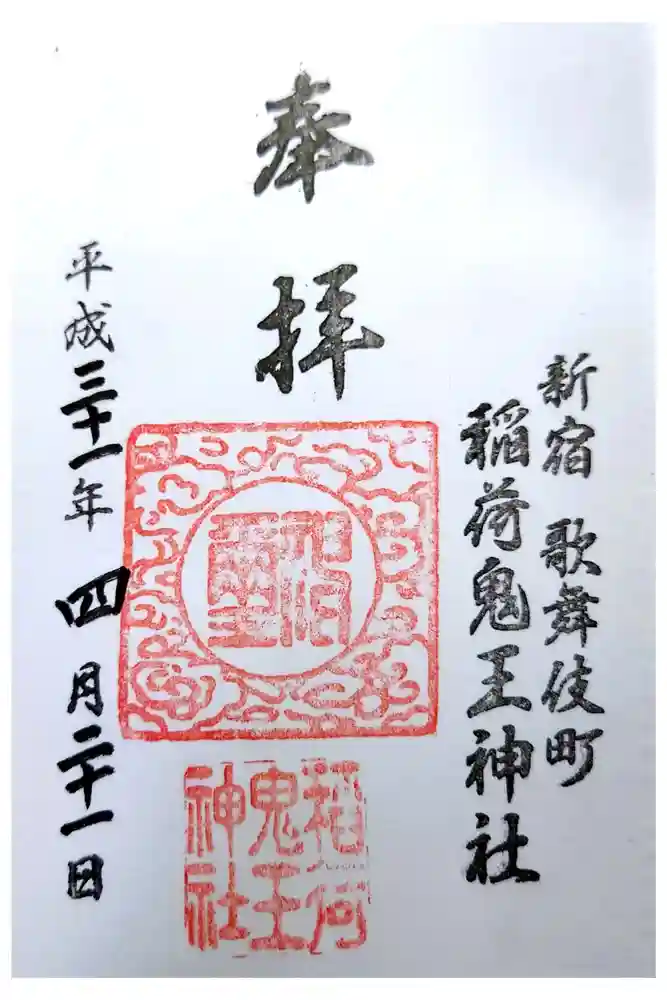 新宿 歌舞伎町
稲荷鬼王神社
奉拝
平成三十一年四月二十一日
稲荷
鬼王
神社